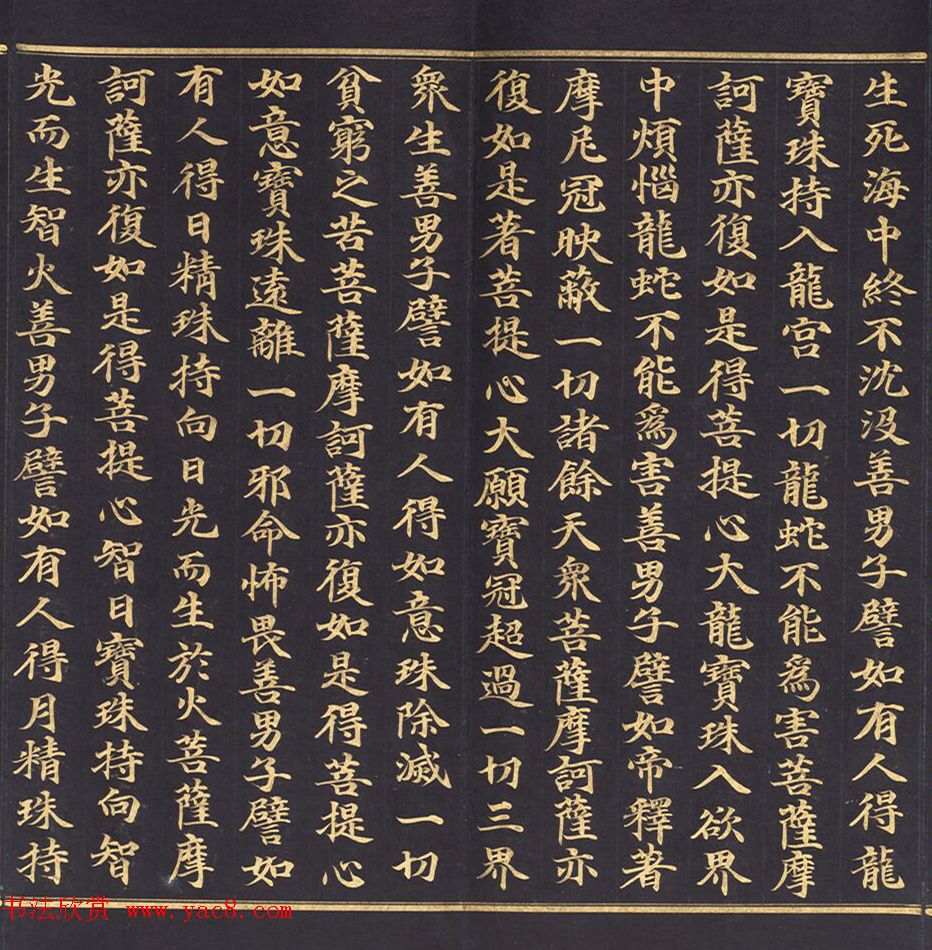 生死海中終不沈沒善男子譬如有人得龍
寶珠持入龍宮一切龍蛇不能為害菩薩摩
訶薩亦復如是得菩提心大龍寶珠入欲界
中煩惱龍蛇不能為害善男子譬如帝釋著
摩尼冠映蔽一切諸餘天眾菩薩摩訶薩亦
復如是著菩提心大願寶冠超過一切三界
眾生善男子譬如有人得如意珠除滅一切
貧窮之苦菩薩摩訶薩亦復如是得菩提心
如意寶珠遠離一切邪命怖畏善男子譬如
有人得日精珠持向日光而生於火菩薩摩
訶薩亦復如是得菩提心智日寶珠持向智
光而生智火善男子譬如有人得月精珠持
书法欣赏 www.yac8.com